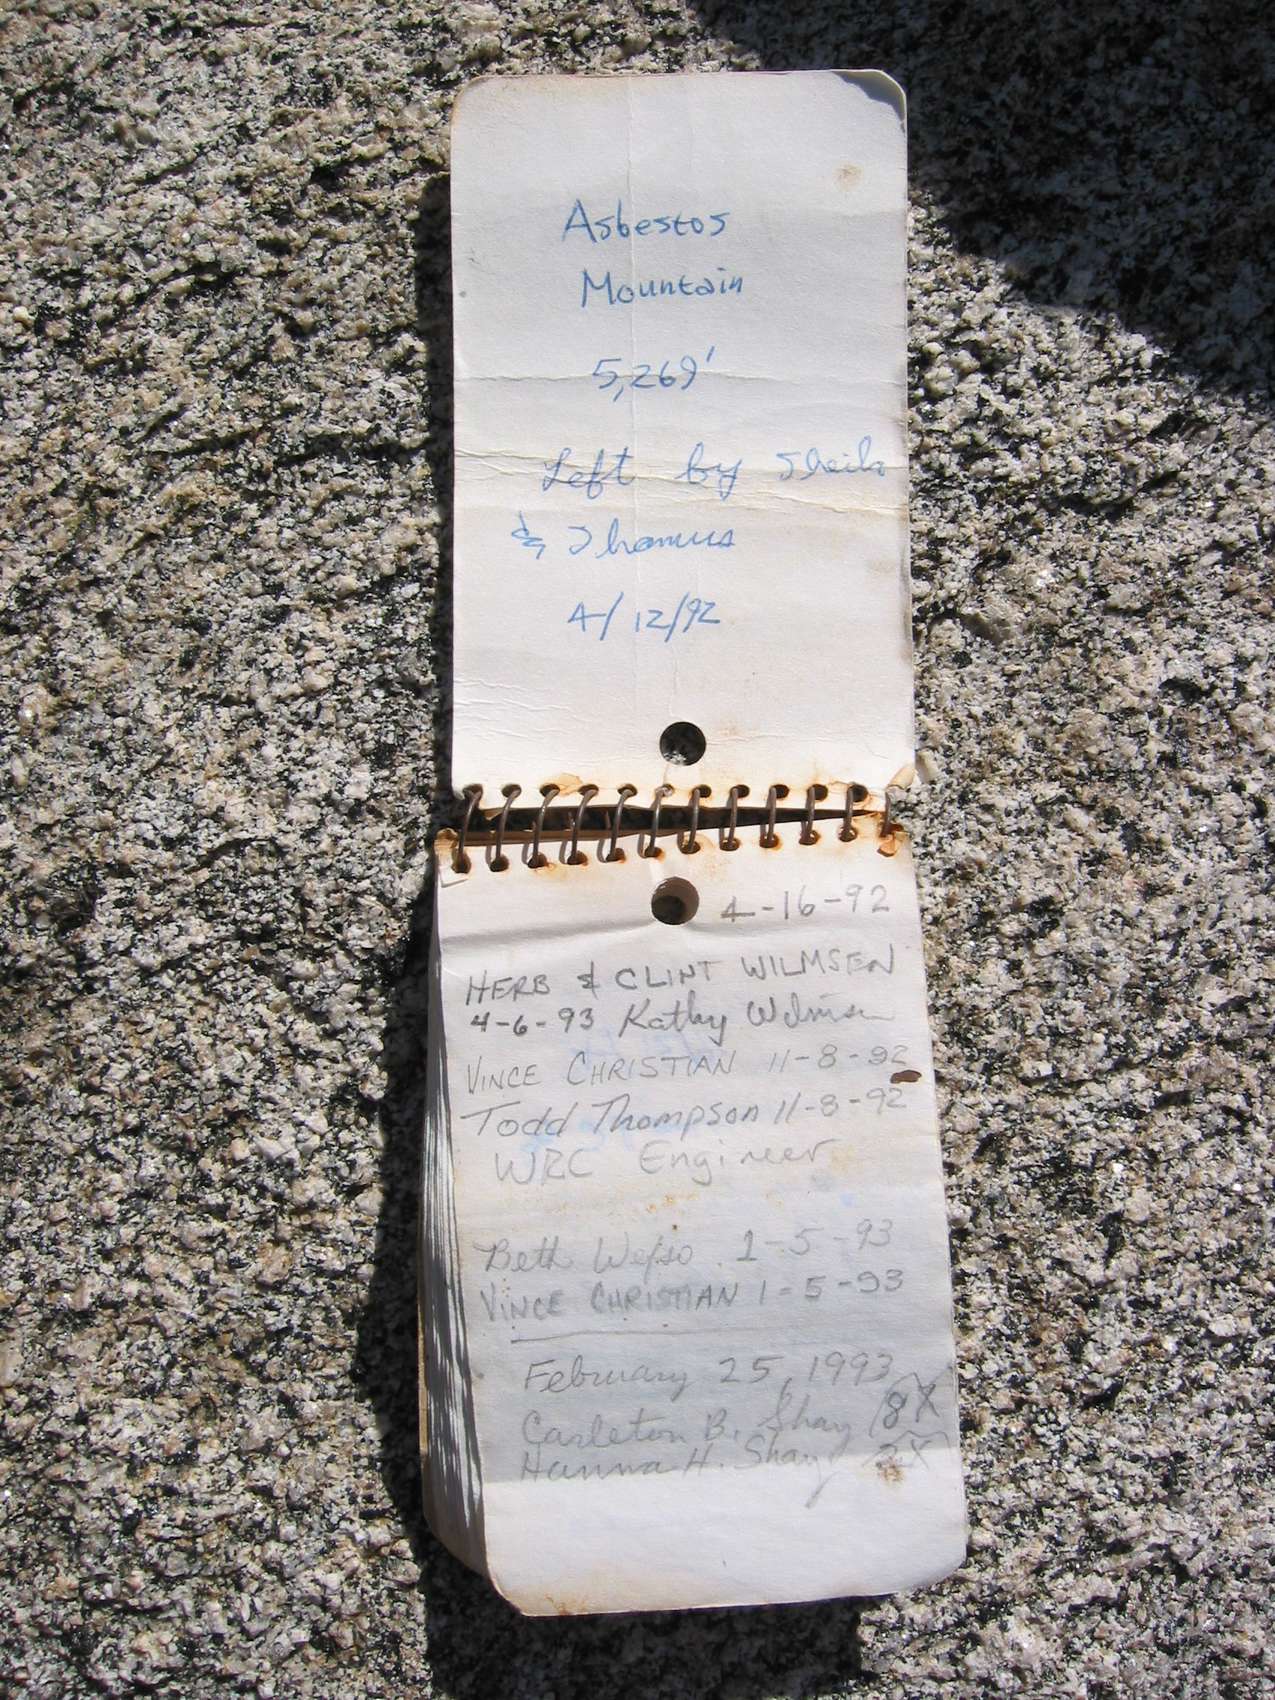 Asbestos
Mountain
5,269'
Left by Sheila
& Thomas
4/12/92
4-16-92
HERB & CLINT WILMSEN
4-6-93 Kathy Wilmsen
VINCE CHRISTIAN 11-8-92
Todd Thompson 11-8-92
WRC Engineer
Beth 1-5-93
VINCE CHRISTIAN 1-5-93
February 25, 1993
Carleton B. Shay 18X
Hanna H. Shay 2X